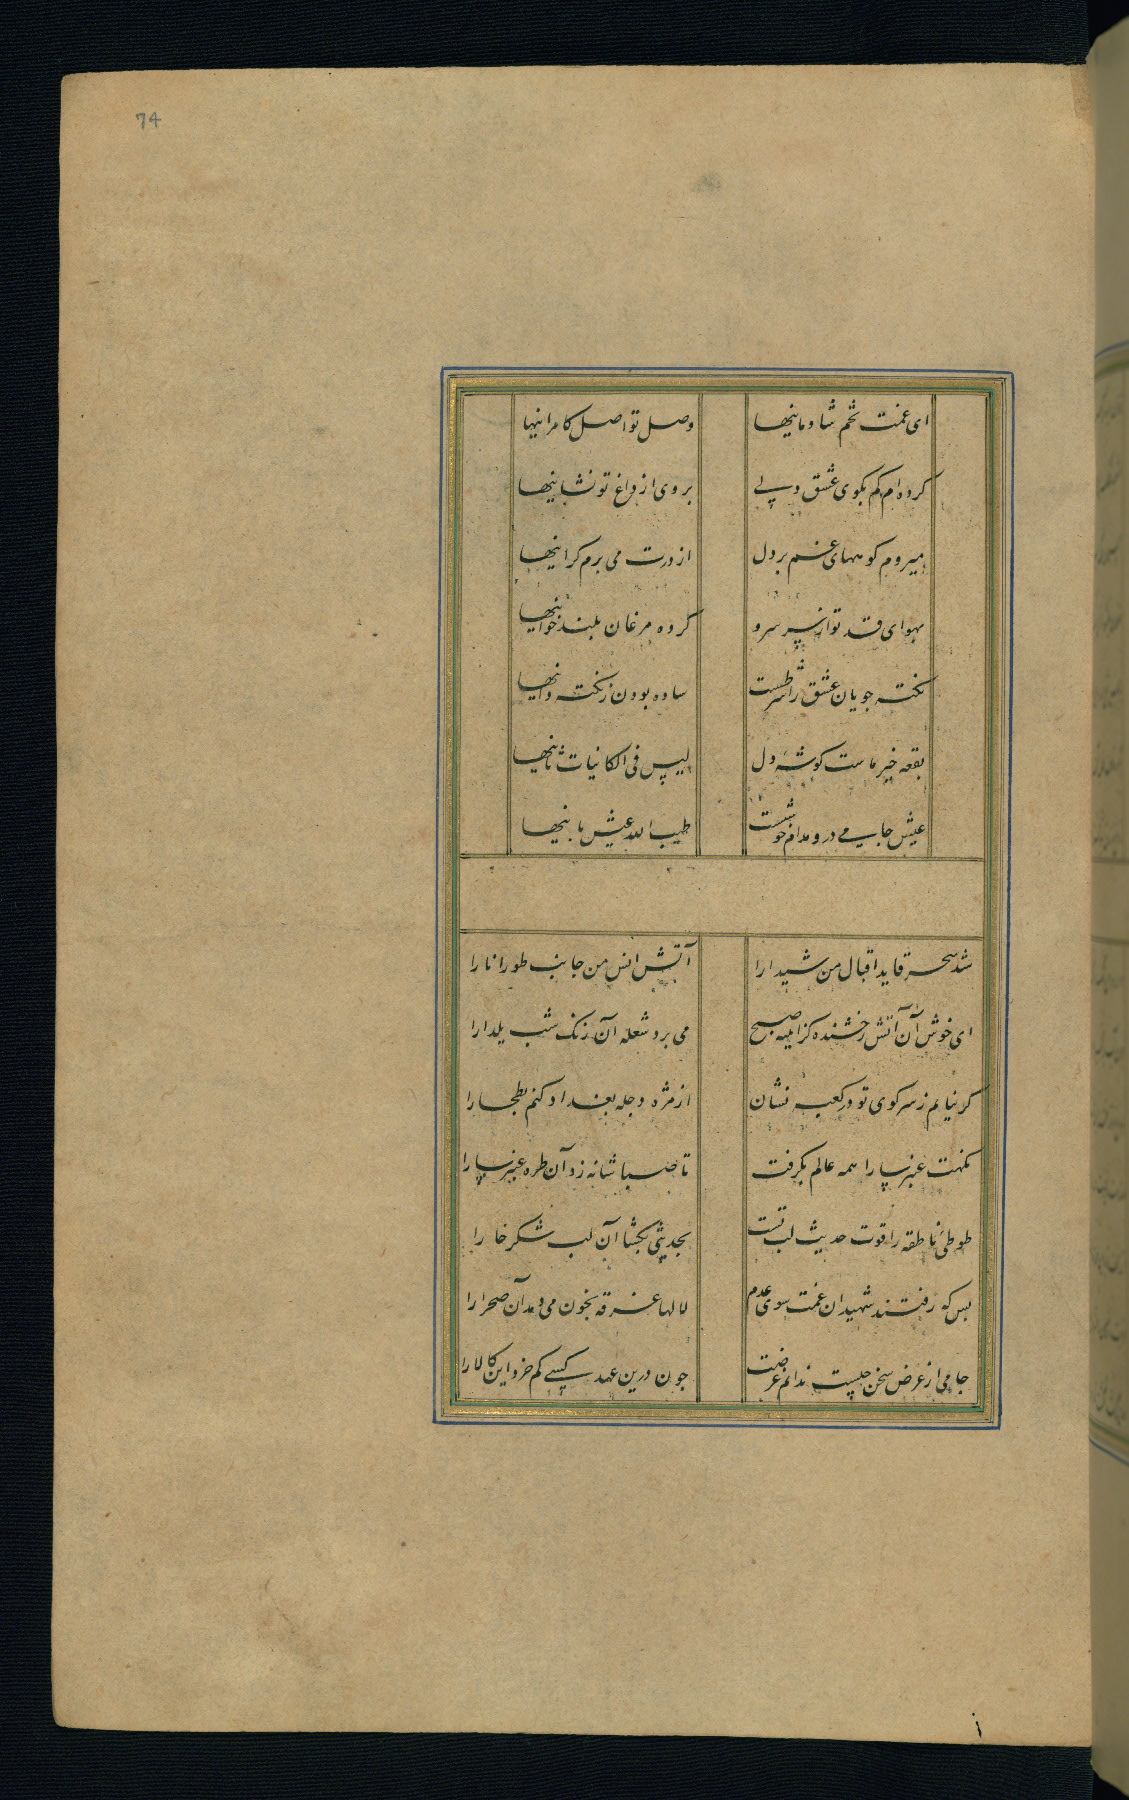 74
ای غمت تخم شادمانیها وصل تو اصل کامرانیها
کرده ام کم بکوی عشق دلی بر وی از داغ تو نشانیها
میروم کوههای غم بر دل از درت می برم کرانیها
بهوای قد تو از سر سرو کرده مرغان بلند خوانیها
نکته جویان عشق را شرطست ساده بودن ز نکته دانیها
بقعه خیر ماست کوشه دل لیس فی الکائنات ثانیها
عیش جامی درو مدام خوشست طیب الله عیش بانیها
شد سحر قاید اقبال من شیدا را آتش انس من جانب طور نارا
ای خوش آن آتش رخشنده کز آیینه صبح می برد شعله آن زنک شب یلدا را
کر نیابم ز سر کوی تو در کعبه نشان از مژه دجله بغداد کنم بطحا را
نکهت عنبر سارا همه عالم بکرفت تا صبا شانه زد آن طره عنبر سارا
طوطی ناطقه را قوت حدیث لب تست بحدیثی بکشا آن لب شکرخا را
بس که رفتند شهیدان غمت سوی عدم لالها غرقه بخون می دمد آن صحرا را
جامی از عرض سخن چیست ندانم غرضت چون درین عهد کسی کم خرد این کالا را